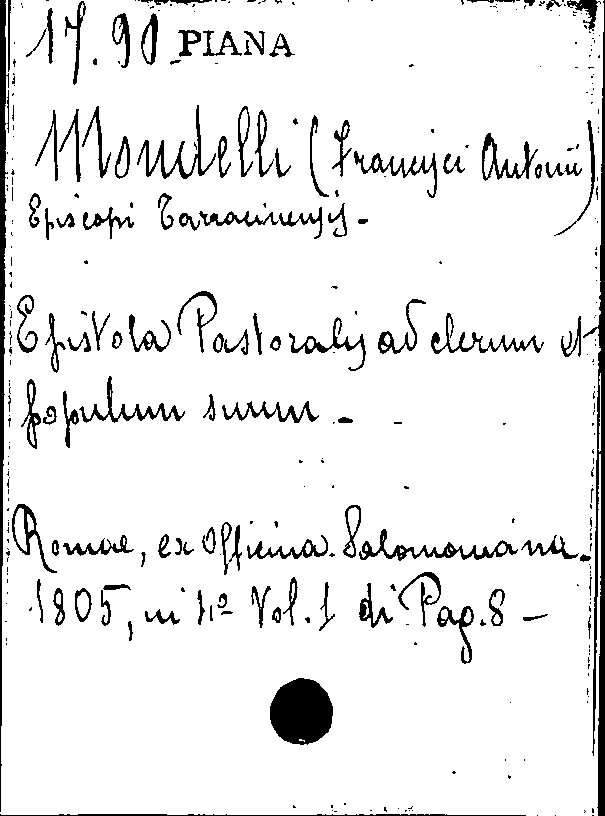 17.90 PIANA
Mondelli (Francisci Antonii)
Episcopi Tarracinensis.-
Epistola Pastoralis ad clerum et
populum suum -
Romae, ex Officina Salomoniana.
1805, in 4º Vol. 1 di Pag. 8 -